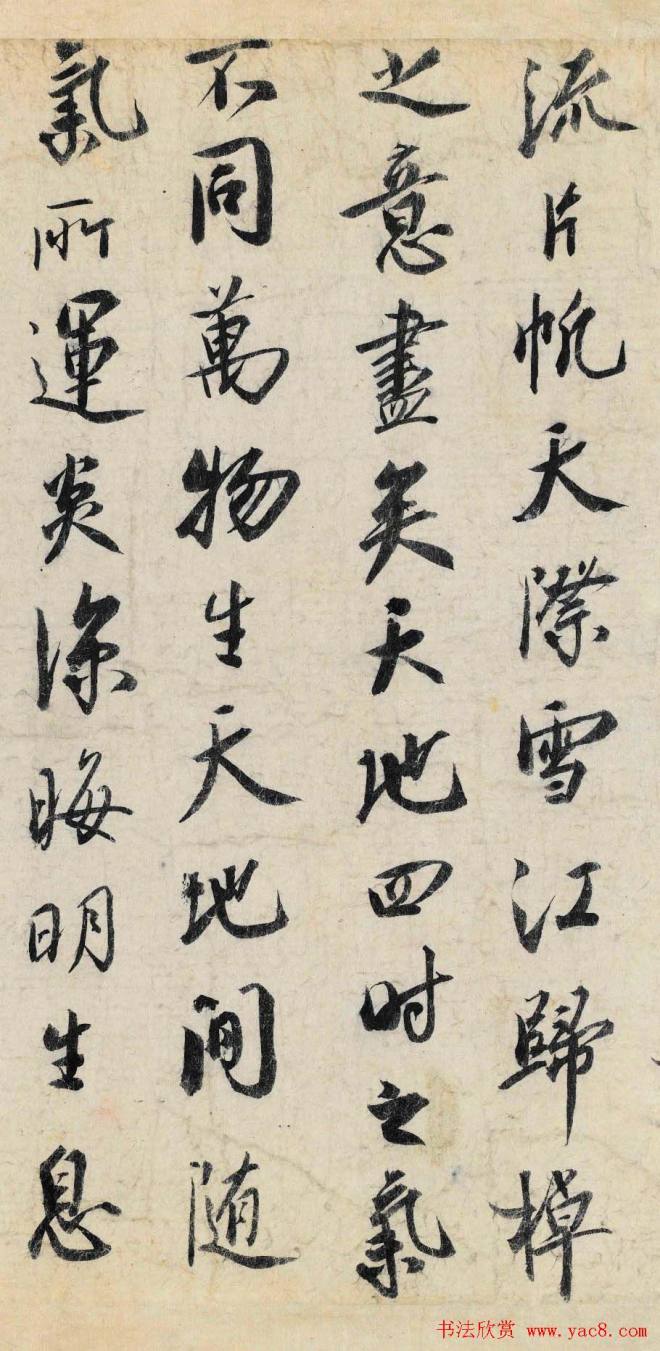 流片帆天際雪江歸棹
之意盡矣天地四時之氣
不同萬物生天地間随
氣所運炎涼晦明生息
书法欣赏 www.yac8.com